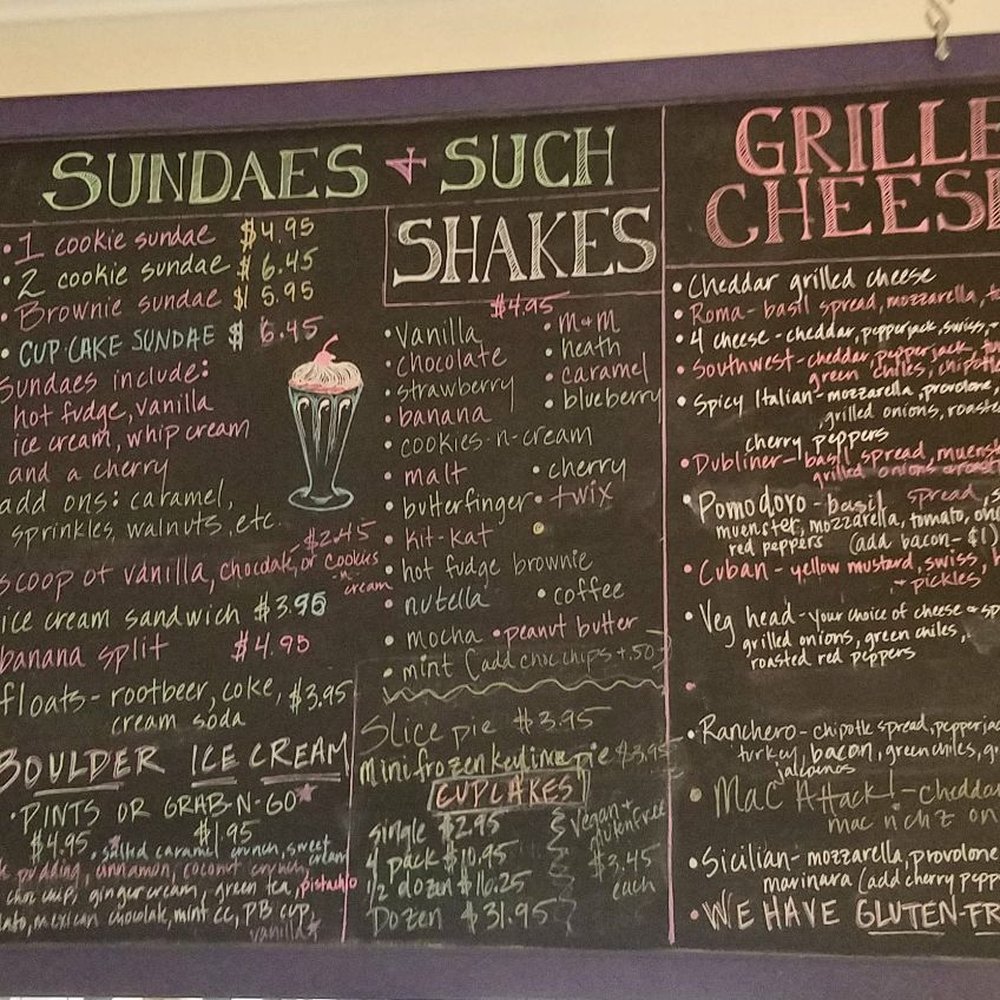 SUNDAES + SUCH
• 1 cookie sundae $4.95
• 2 cookie sundae $6.45
• Brownie sundae $5.95
• CUPCAKE SUNDAE $6.45
Sundaes include:
hot fudge, vanilla
ice cream, whip cream
and a cherry
add ons: caramel,
sprinkles, walnuts, etc.
$2.45
scoop of vanilla, chocolate, or cookies
-n-
cream
ice cream sandwich $3.95
banana split $4.95
floats - rootbeer, coke, $3.95
cream soda
BOULDER ICE CREAM
• PINTS OR GRAB-N-GO*
$4.95 $1.95
• salted caramel crunch, sweet
cream
pudding, cinnamon, coconut crunch,
choc chip, ginger cream, green tea, pistachio
mexican chocolate, mint cc, PB cup,
vanilla*
SHAKES
$4.95
• Vanilla • M+M
• chocolate • heath
• strawberry • caramel
• banana • blueberry
• cookies-n-cream
• malt • cherry
• butterfinger • twix
• kit-kat
• hot fudge brownie
• nutella • coffee
• mocha • peanut butter
• mint (add choc chips +.50)
Slice pie $3.95
mini frozen key lime pie $3.95
CUPCAKES
single $2.95
4 pack $10.95
1/2 dozen $16.25
Dozen $31.95
vegan +
gluten free
$3.45
each
GRILLE
CHEES
• Cheddar grilled cheese
• Roma - basil spread, mozzarella,
• 4 cheese - cheddar, pepperjack, swiss,
• Southwest - cheddar, pepperjack,
green chiles, chipotle
• Spicy Italian - mozzarella, provolone
grilled onions, roasted
cherry peppers
• Dubliner - basil spread, muenster
grilled onions
Pomodoro - basil spread,
muenster, mozzarella, tomato,
red peppers (add bacon - $1)
• Cuban - yellow mustard, swiss,
+ pickles
• Veg head - your choice of cheese +
grilled onions, green chiles,
roasted red peppers
• Ranchero - chipotle spread, pepperjack
turkey, bacon, green chiles,
jalapenos
• Mac Attack! - cheddar
mac n chz on
• Sicilian - mozzarella, provolone
marinara (add cherry pepp
• WE HAVE GLUTEN-FR